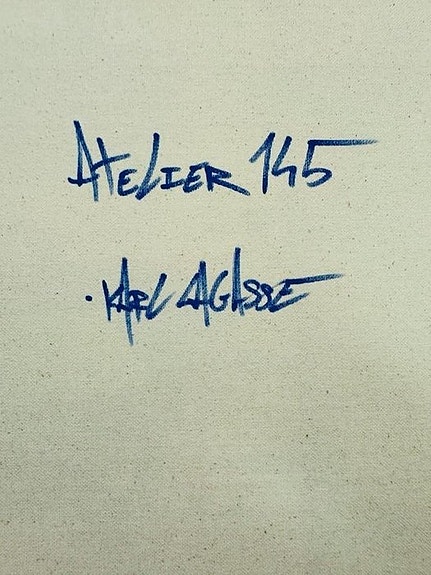 ATELIER 145
. KARL LAGASSE